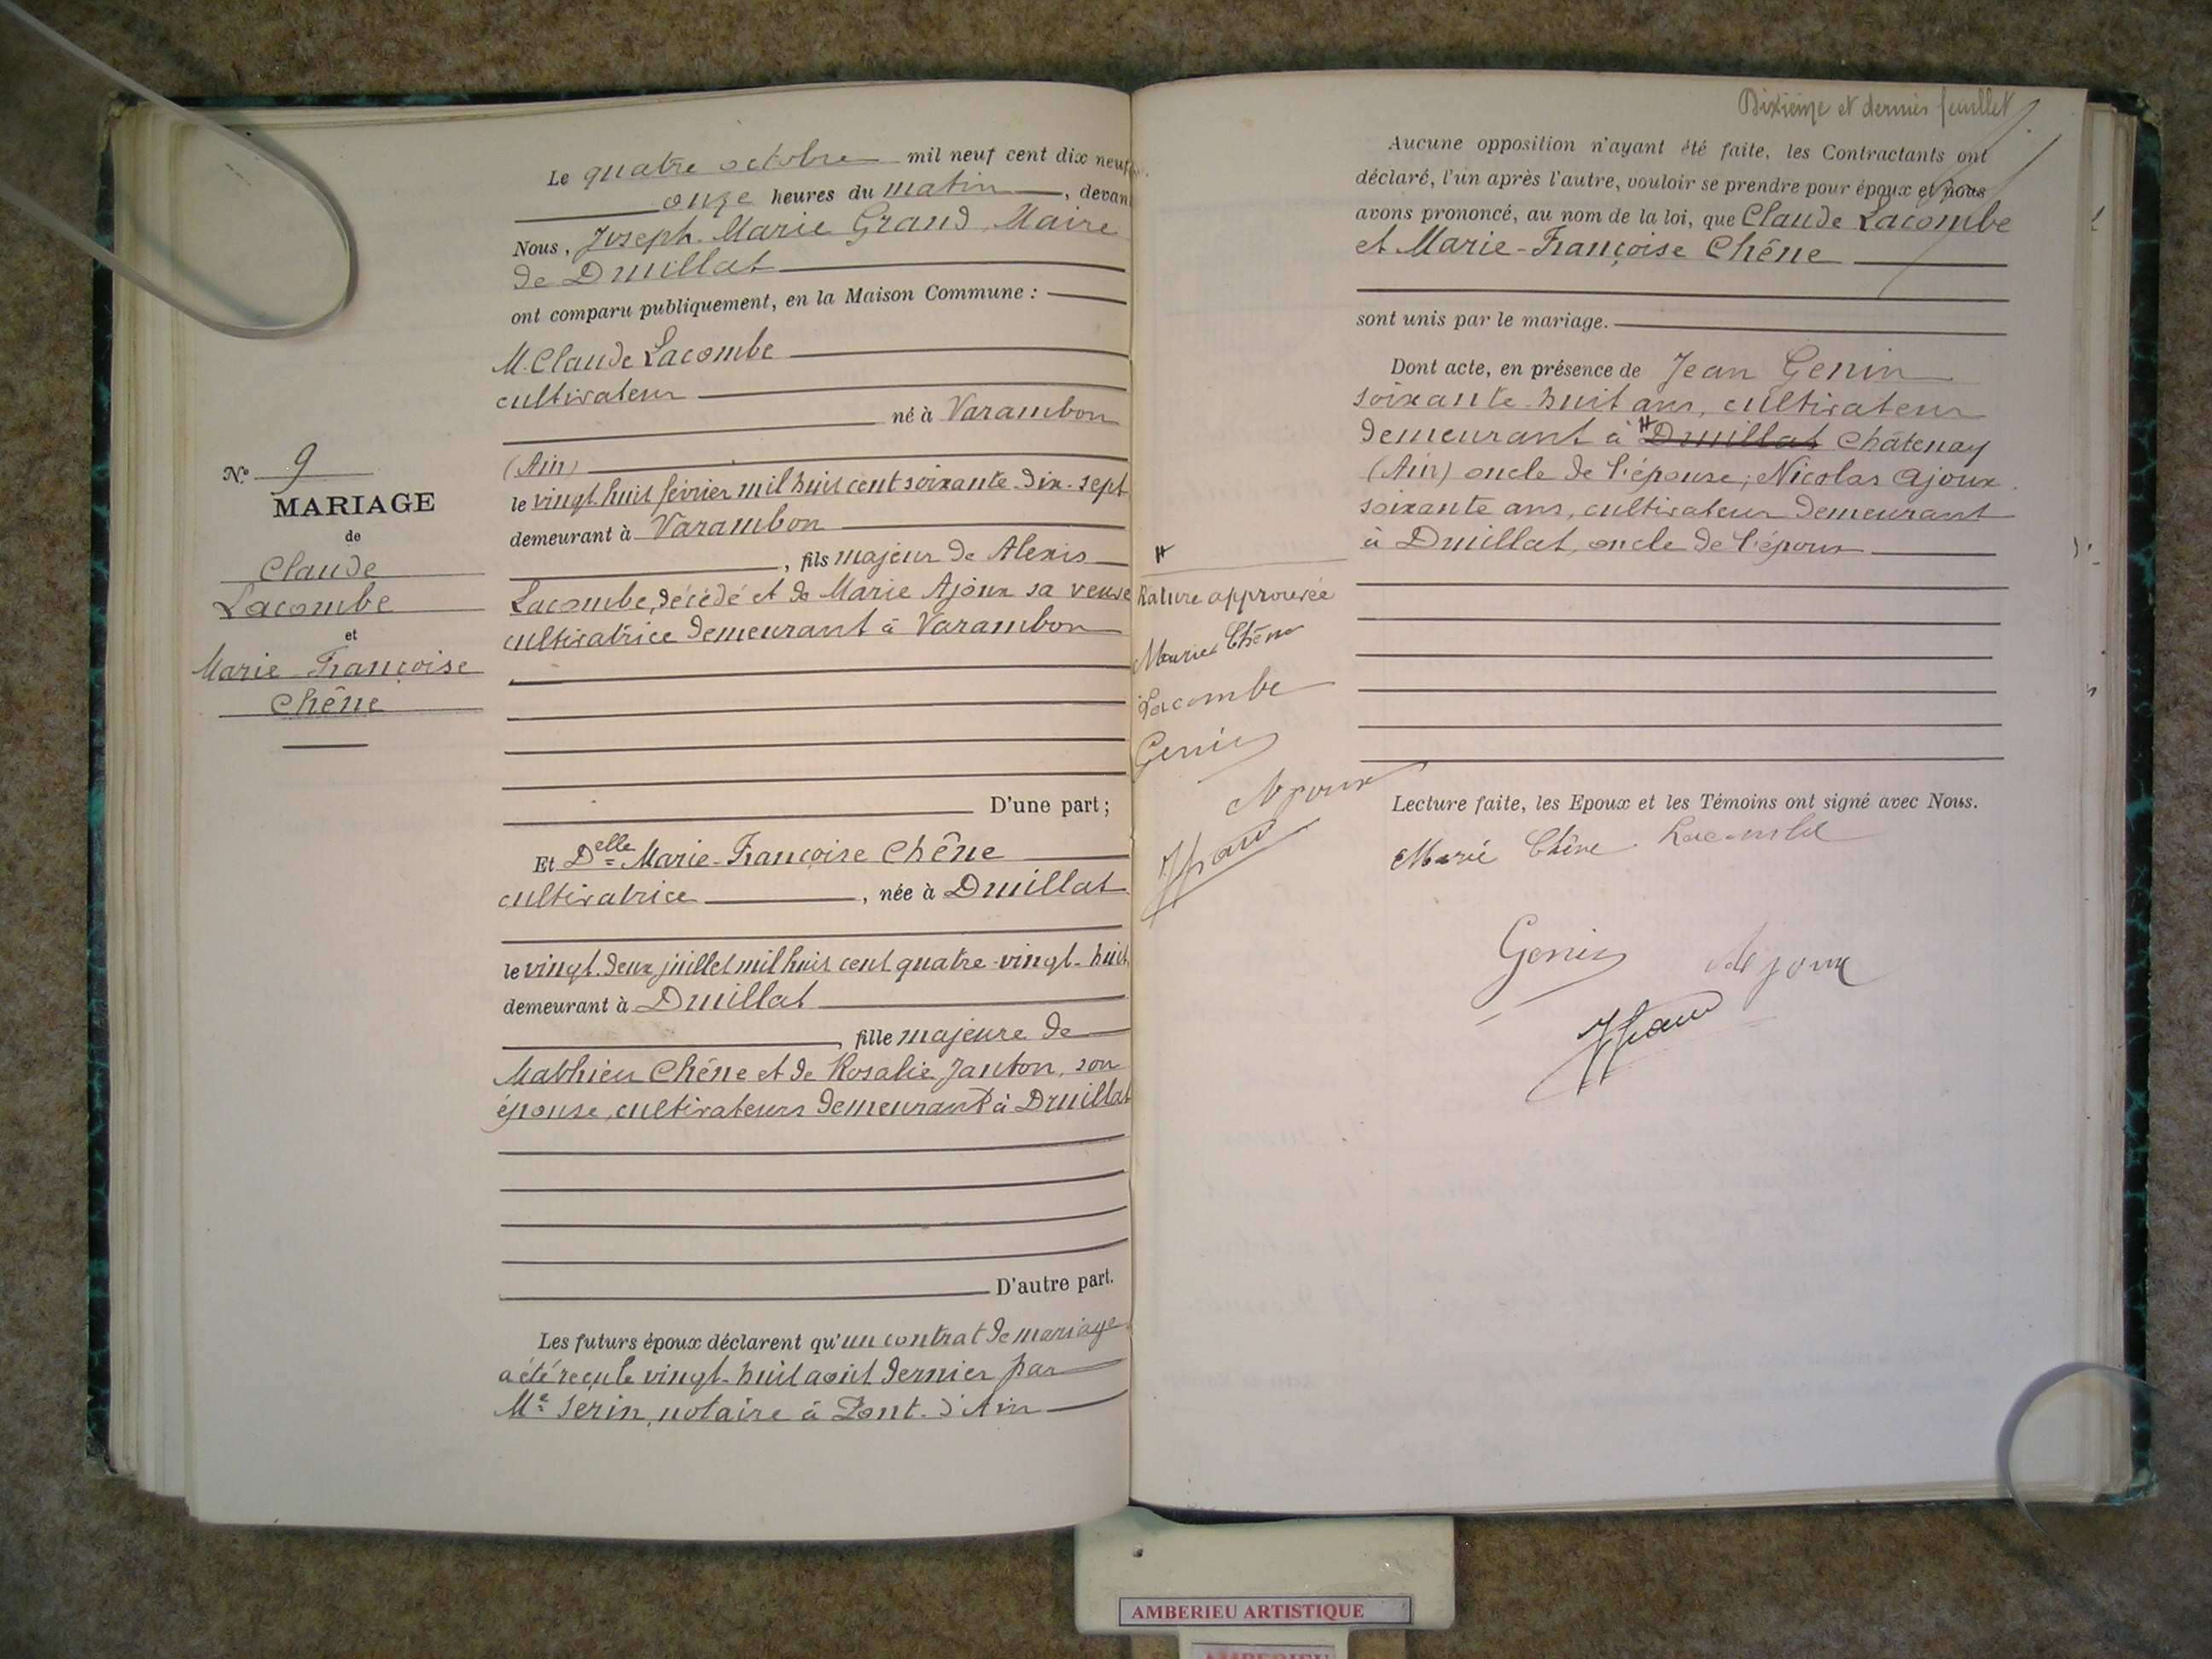 Le quatre octobre mil neuf cent dix neuf
onze heures du matin, devan
Nous, Joseph. Marie Grand, Maire
de Druillat
ont comparu publiquement, en la Maison Commune :
M. Claude Lacombe
cultivateur
né à Varambon
(Ain)
le vingt huit février mil huit cent soixante-dix-sept
demeurant à Varambon
, fils majeur de Alexis
Lacombe, décédé et de Marie Ajoux sa veuve
cultivatrice demeurant à Varambon
D'une part ;
Et Delle Marie-Françoise Chêne
cultivatrice, née à Druillat
le vingt-deux juillet mil huit cent quatre-vingt-huit
demeurant à Druillat
, fille majeure de
Mathieu Chêne et de Rosalie Janton, son
épouse, cultivateurs demeurant à Druillat
D'autre part.
Les futurs époux déclarent qu'un contrat de mariage
a été reçu le vingt-huit août dernier par
Me Serin, notaire à Pont-d'Ain
No 9
MARIAGE
de
Claude
Lacombe
et
Marie-Françoise
Chêne
Dixième et dernier feuillet
Aucune opposition n'ayant été faite, les Contractants ont
déclaré, l'un après l'autre, vouloir se prendre pour époux et nous
avons prononcé, au nom de la loi, que Claude Lacombe
et Marie-Françoise Chêne
sont unis par le mariage.
Dont acte, en présence de Jean Genin
soixante-huit ans, cultivateur
demeurant à Druillat Châtenay
(Ain) oncle de l'épouse ; Nicolas Ajoux
soixante ans, cultivateur demeurant
à Druillat, oncle de l'époux
Lecture faite, les Epoux et les Témoins ont signé avec Nous.
Marie Chêne Lacombe
Genin Ajoux
JGrand
Rature approuvée
Marie Chêne
Lacombe
Genin
Ajoux
JGrand
AMBERIEU ARTISTIQUE
AMBERIEU